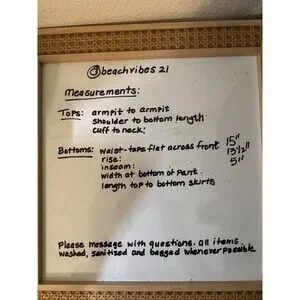 @beachvibes 21
Measurements:
Tops: armpit to armpit
shoulder to bottom length
cuff to neck:
Bottoms: waist-tape flat across front 15"
rise: 13½"
inseam: 5"
width at bottom of pant.
length top to bottom skirts
Please message with questions. all items
washed, sanitized and bagged whenever possible